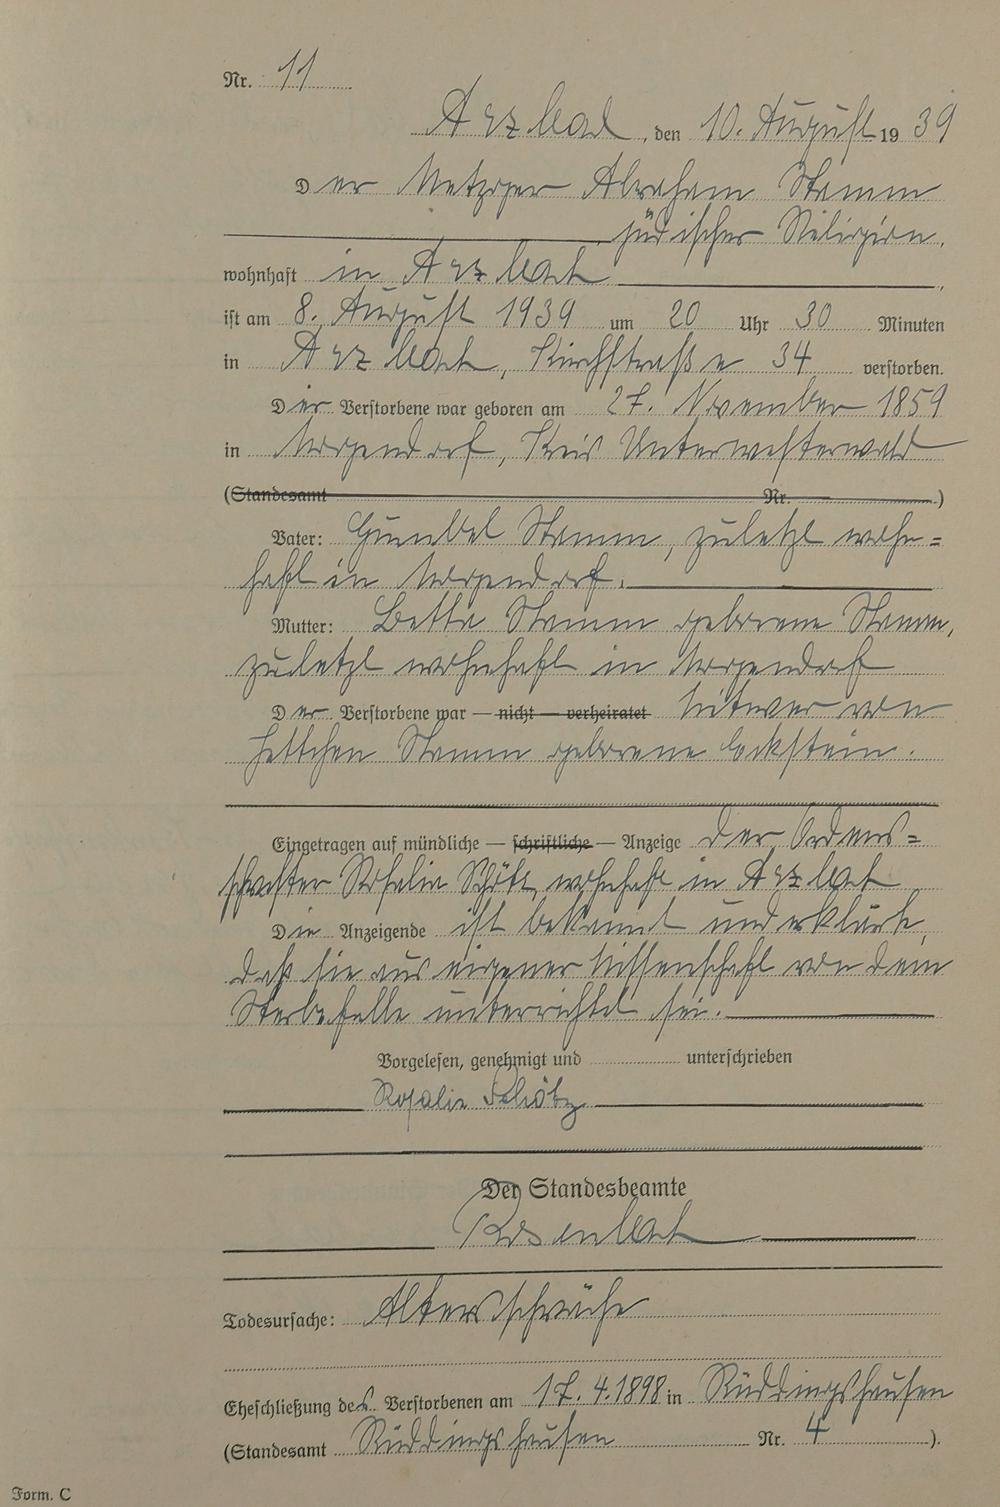 Nr. 11
Arzbach, den 10. August 1939
Der Metzger Abraham Stamm
jüdischer Religion,
wohnhaft in Arzbach,
ist am 8. August 1939 um 20 Uhr 30 Minuten
in Arzbach, Kirchstraße 34 verstorben.
Der Verstorbene war geboren am 27. November 1859
in Mogendorf, Kreis Unterwesterwald
(Standesamt Nr. )
Vater: Gumbel Stamm, zuletzt wohn=
haft in Mogendorf.
Mutter: Stamm geborene Stamm,
zuletzt wohnhaft in Mogendorf
Der Verstorbene war — nicht — verheiratet Witwer von
Jettchen Stamm geborene
Eingetragen auf mündliche — schriftliche — Anzeige der Ordens=
schwester Rosalia wohnhaft in Arzbach
Die Anzeigende ist bekannt und erklärte,
daß sie aus eigener Wissenschaft von dem
Sterbefalle unterrichtet sei.
Vorgelesen, genehmigt und unterschrieben
Rosalia
Der Standesbeamte
Todesursache: Altersschwäche
Eheschließung des Verstorbenen am 17.4.1898 in Rüddingshausen
(Standesamt Rüddingshausen Nr. 4 ).
Form. C